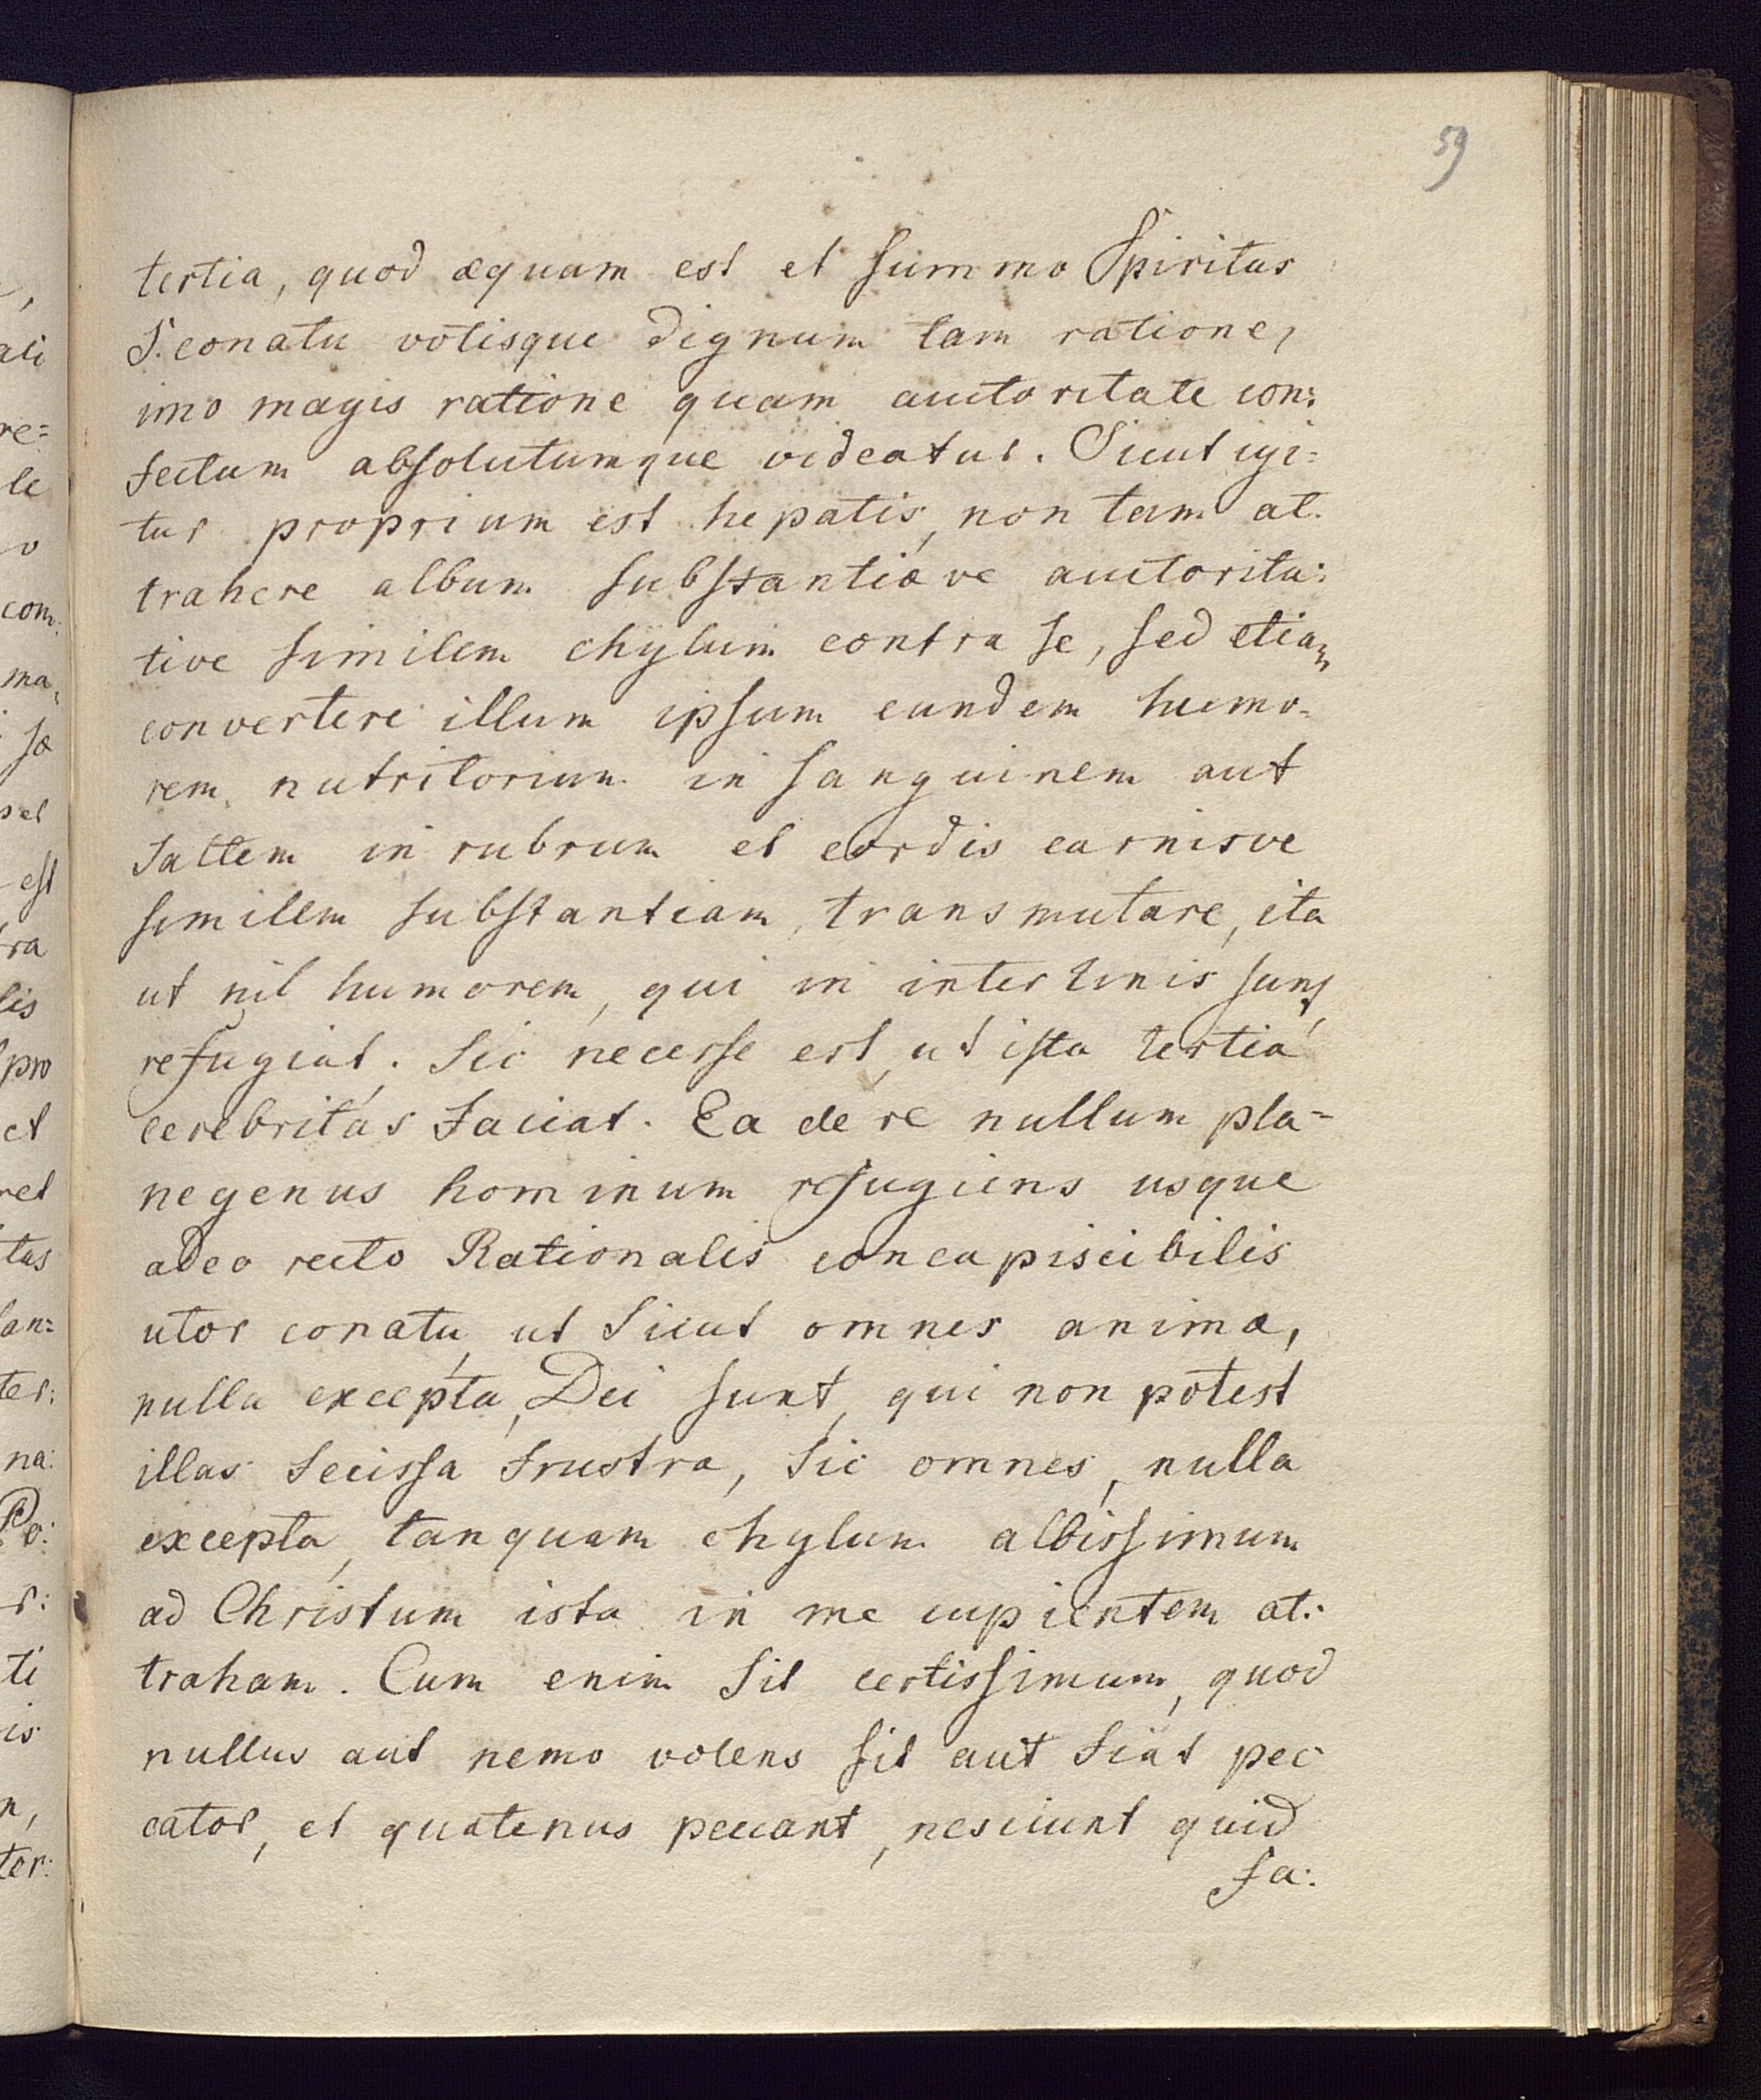 59
tertia, quod æquam est et summo Spiritus
S. conatu votisque dignum tam ratione,
imo magis ratione quam auctoritate con:
fectum absolutumque videatur. Sicut igi=
tur proprium est hepatis, non tam at.
trahere album substantiæve auctorita:
tive similem chylum contra se, sed etiam
convertere illum ipsum eundem humo-
rem nutritorium in sanguinem aut
saltem in rubrum et cordis carnisve
similem substantiam, transmutare, ita
ut nil humorem, qui in intestinis sunt,
refugiat. Sic necesse est, ut ista tertia
cerebritas faciat. Ea de re nullum pla=
ne genus hominum refugiens usque
adeo recto Rationalis concupiscibilis
utor conatu, ut sicut omnes animæ,
nulla excepta, Dei sunt, qui non potest
illas fecissa frustra, sic omnes, nulla
excepta, tanquam chylum albissimum
ad Christum ista in me cupientem at:
traham. Cum enim sit certissimum, quod
nullus aut nemo volens sit aut fiat pec
cator, et quatenus peccant, nesciunt quid
fa: